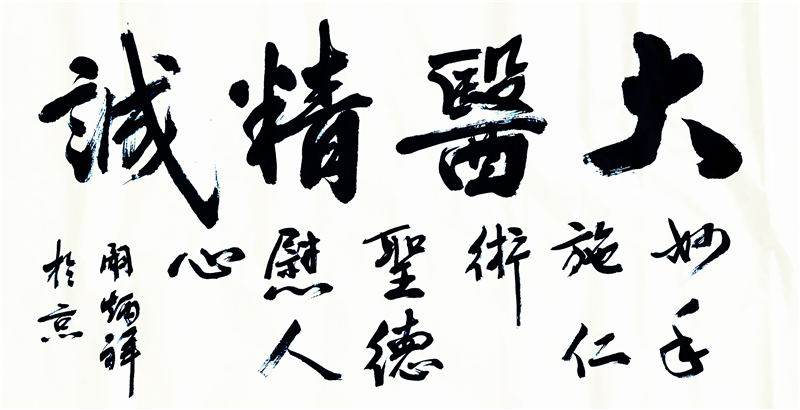 大醫精誠
妙手
施仁
術
聖德
慰人
心
炳祥
於京